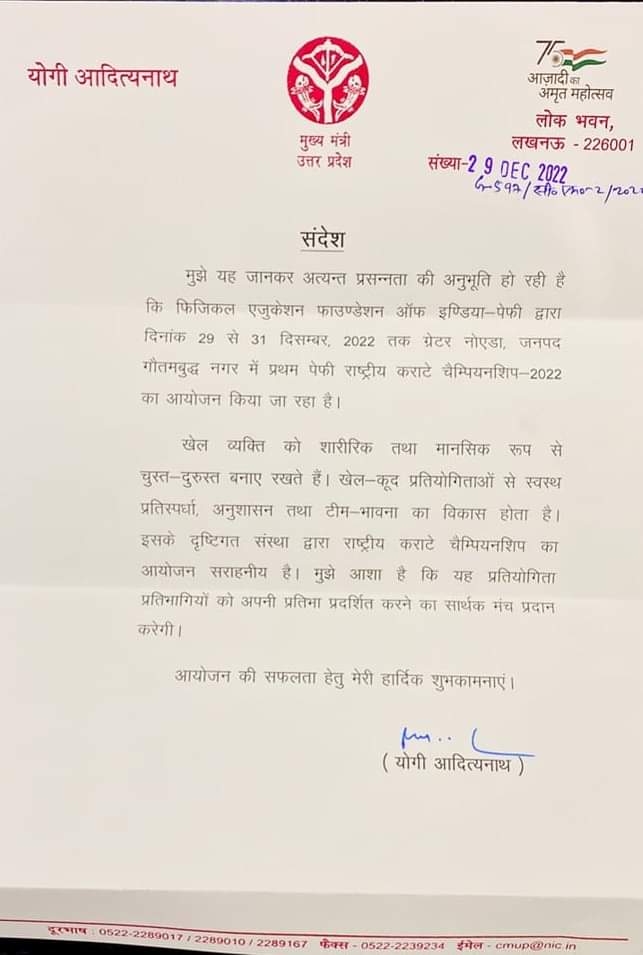 योगी आदित्यनाथ
मुख्य मंत्री
उत्तर प्रदेश
75
आज़ादी का
अमृत महोत्सव
लोक भवन,
लखनऊ - 226001
संख्या-2 9 DEC 2022
संदेश
मुझे यह जानकर अत्यन्त प्रसन्नता की अनुभूति हो रही है
कि फिजिकल एजुकेशन फाउण्डेशन ऑफ इण्डिया–पेफी द्वारा
दिनांक 29 से 31 दिसम्बर, 2022 तक ग्रेटर नोएडा, जनपद
गौतमबुद्ध नगर में प्रथम पेफी राष्ट्रीय कराटे चैम्पियनशिप–2022
का आयोजन किया जा रहा है।
खेल व्यक्ति को शारीरिक तथा मानसिक रूप से
चुस्त–दुरुस्त बनाए रखते हैं। खेल–कूद प्रतियोगिताओं से स्वस्थ
प्रतिस्पर्धा, अनुशासन तथा टीम–भावना का विकास होता है।
इसके दृष्टिगत संस्था द्वारा राष्ट्रीय कराटे चैम्पियनशिप का
आयोजन सराहनीय है। मुझे आशा है कि यह प्रतियोगिता
प्रतिभागियों को अपनी प्रतिभा प्रदर्शित करने का सार्थक मंच प्रदान
करेगी।
आयोजन की सफलता हेतु मेरी हार्दिक शुभकामनाएं।
( योगी आदित्यनाथ )
दूरभाष : 0522-2289017 / 2289010 / 2289167 फैक्स - 0522-2239234 ईमेल - cmup@nic.in